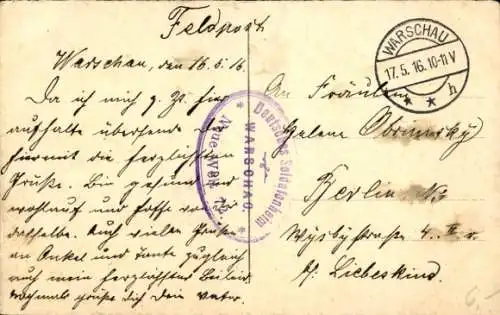 Feldpost
Warschau, den 16.5.16
Da ich mich z. Zt. hier
aufhalte übersende Dir
hiermit die herzlichsten
Grüße. Bin gesund und
wohlauf und hoffe von Dir
dasselbe. Auch vielen Grüße
an Onkel und Tante zugleich
auch mein herzlichstes Beileid
nochmals grüße dich Dein Vater.
Deutsches Soldatenheim
WARSCHAU
WARSCHAU
17.5.16.10-11V
* * h
An Fräulein
Helene
Berlin No
4.
b/ Liebeskind.
6.-